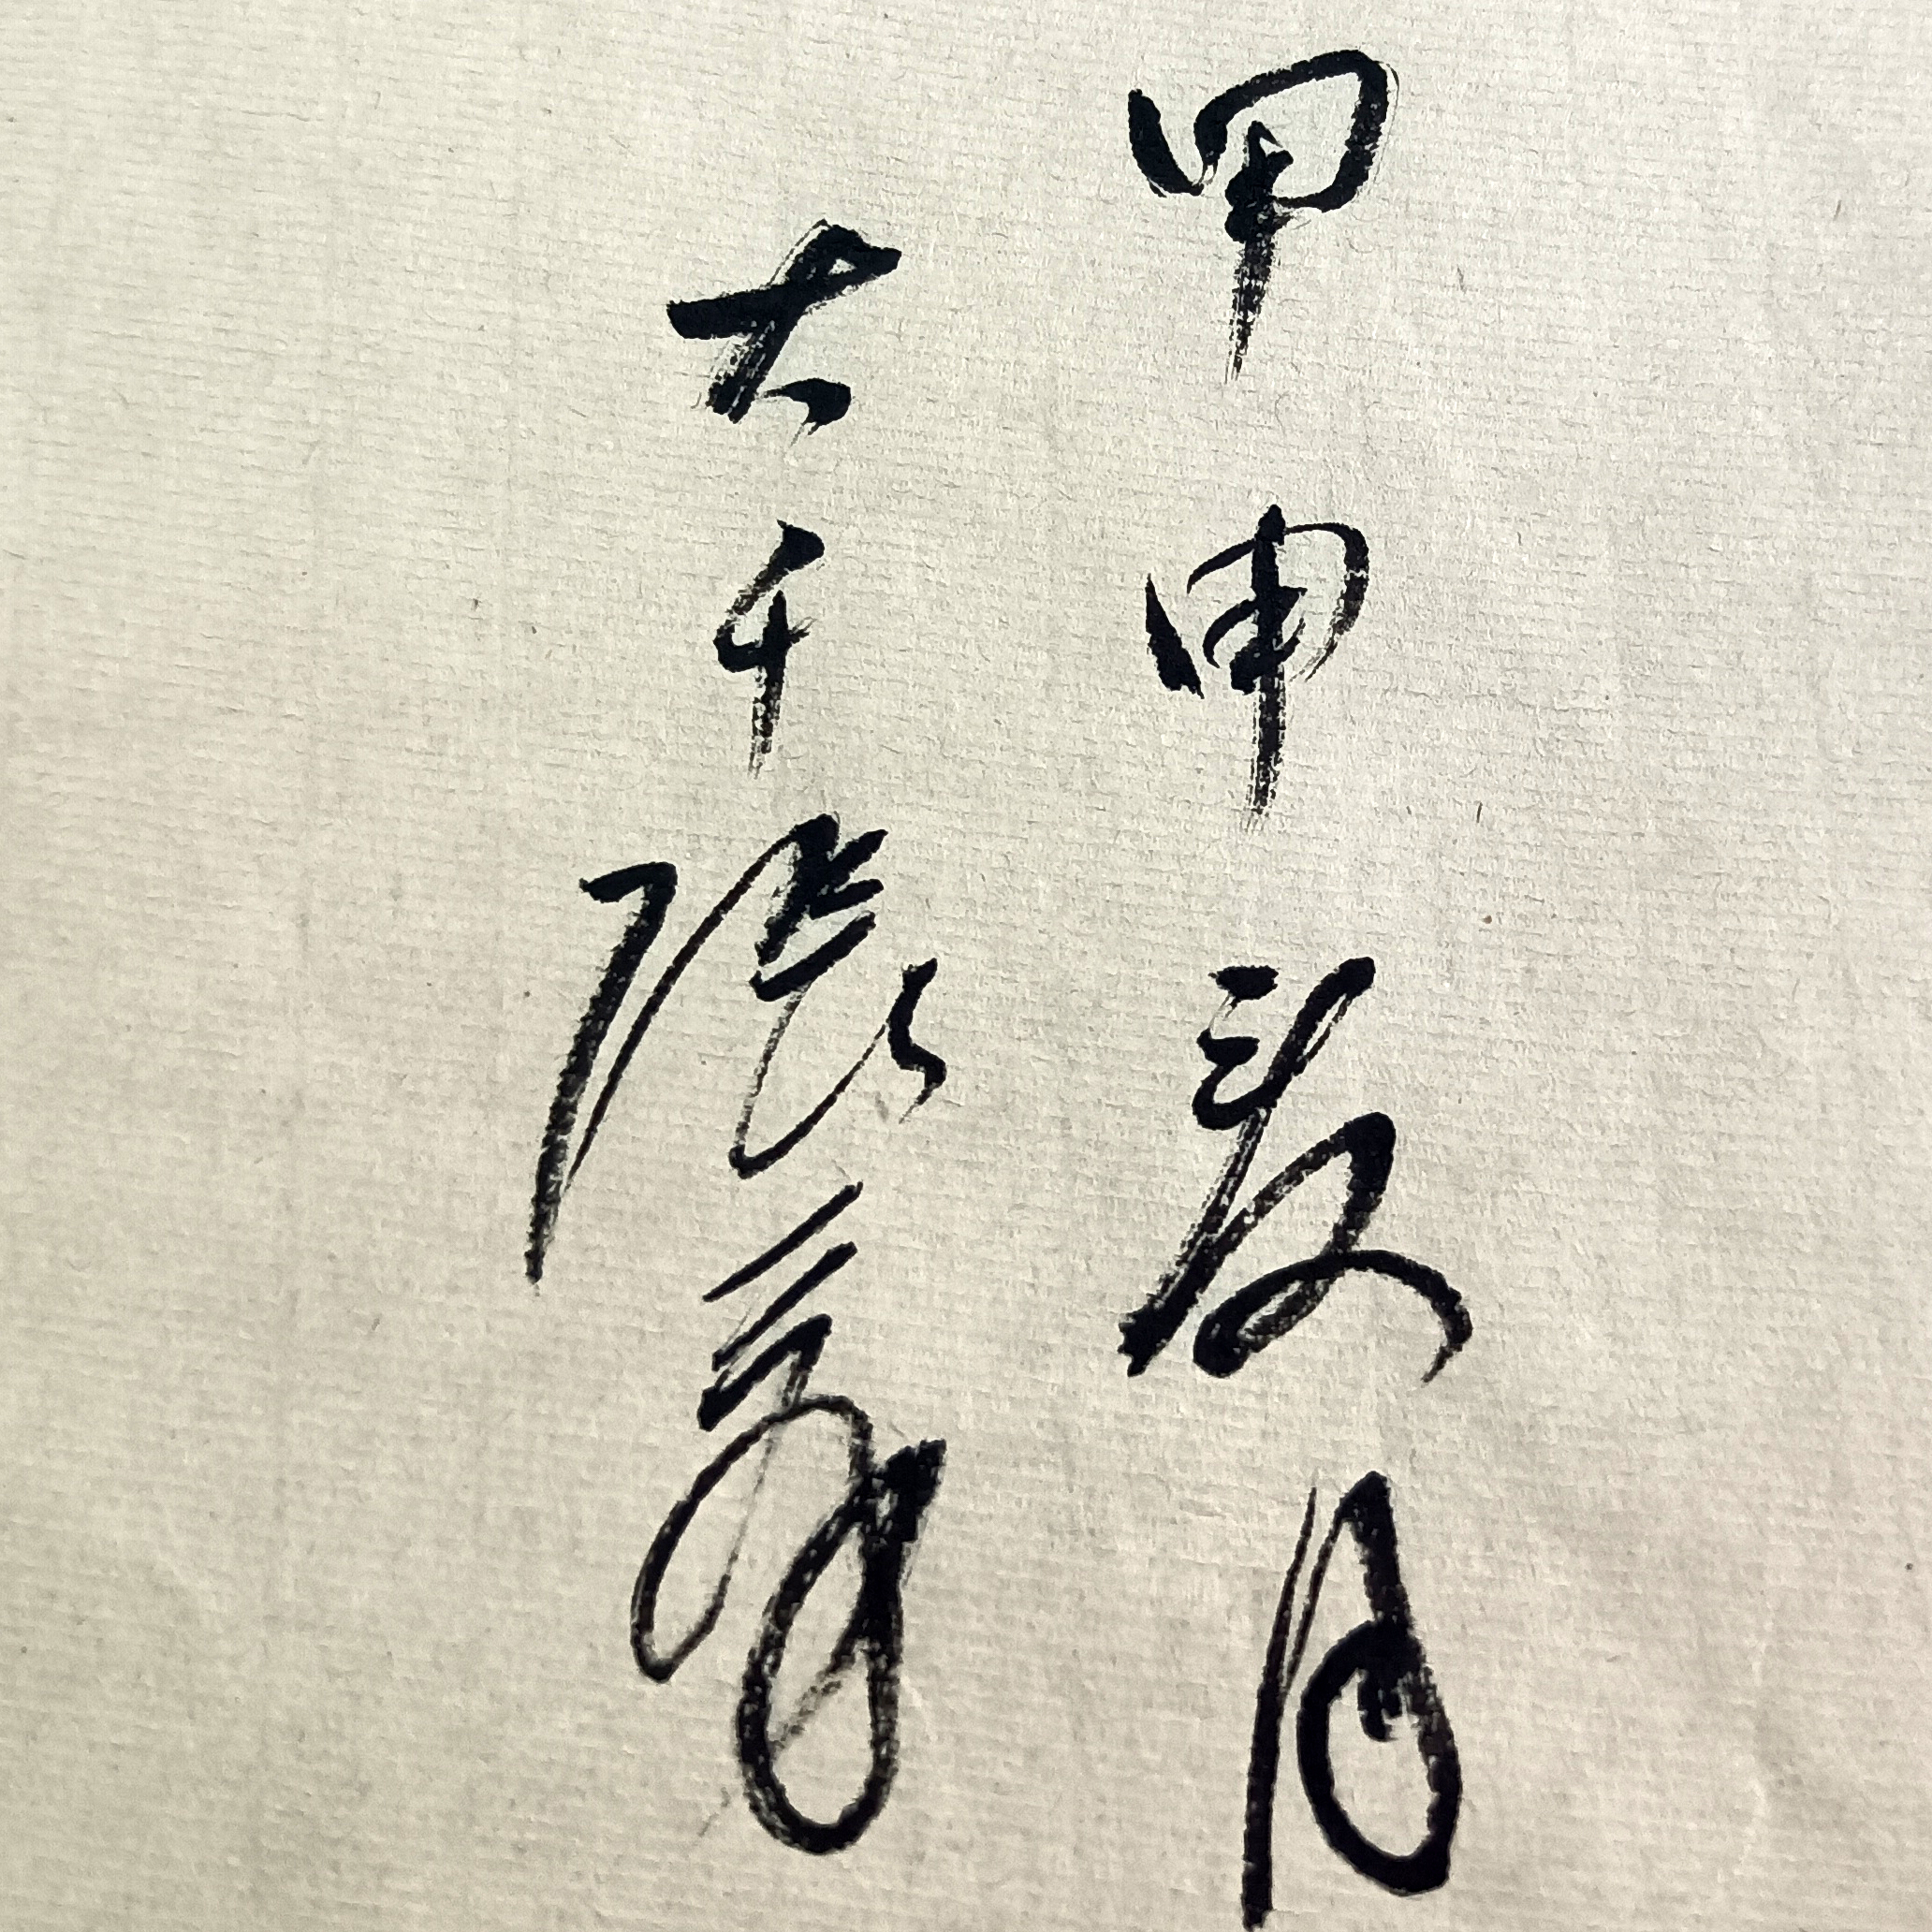 甲申夏月
大千張爰